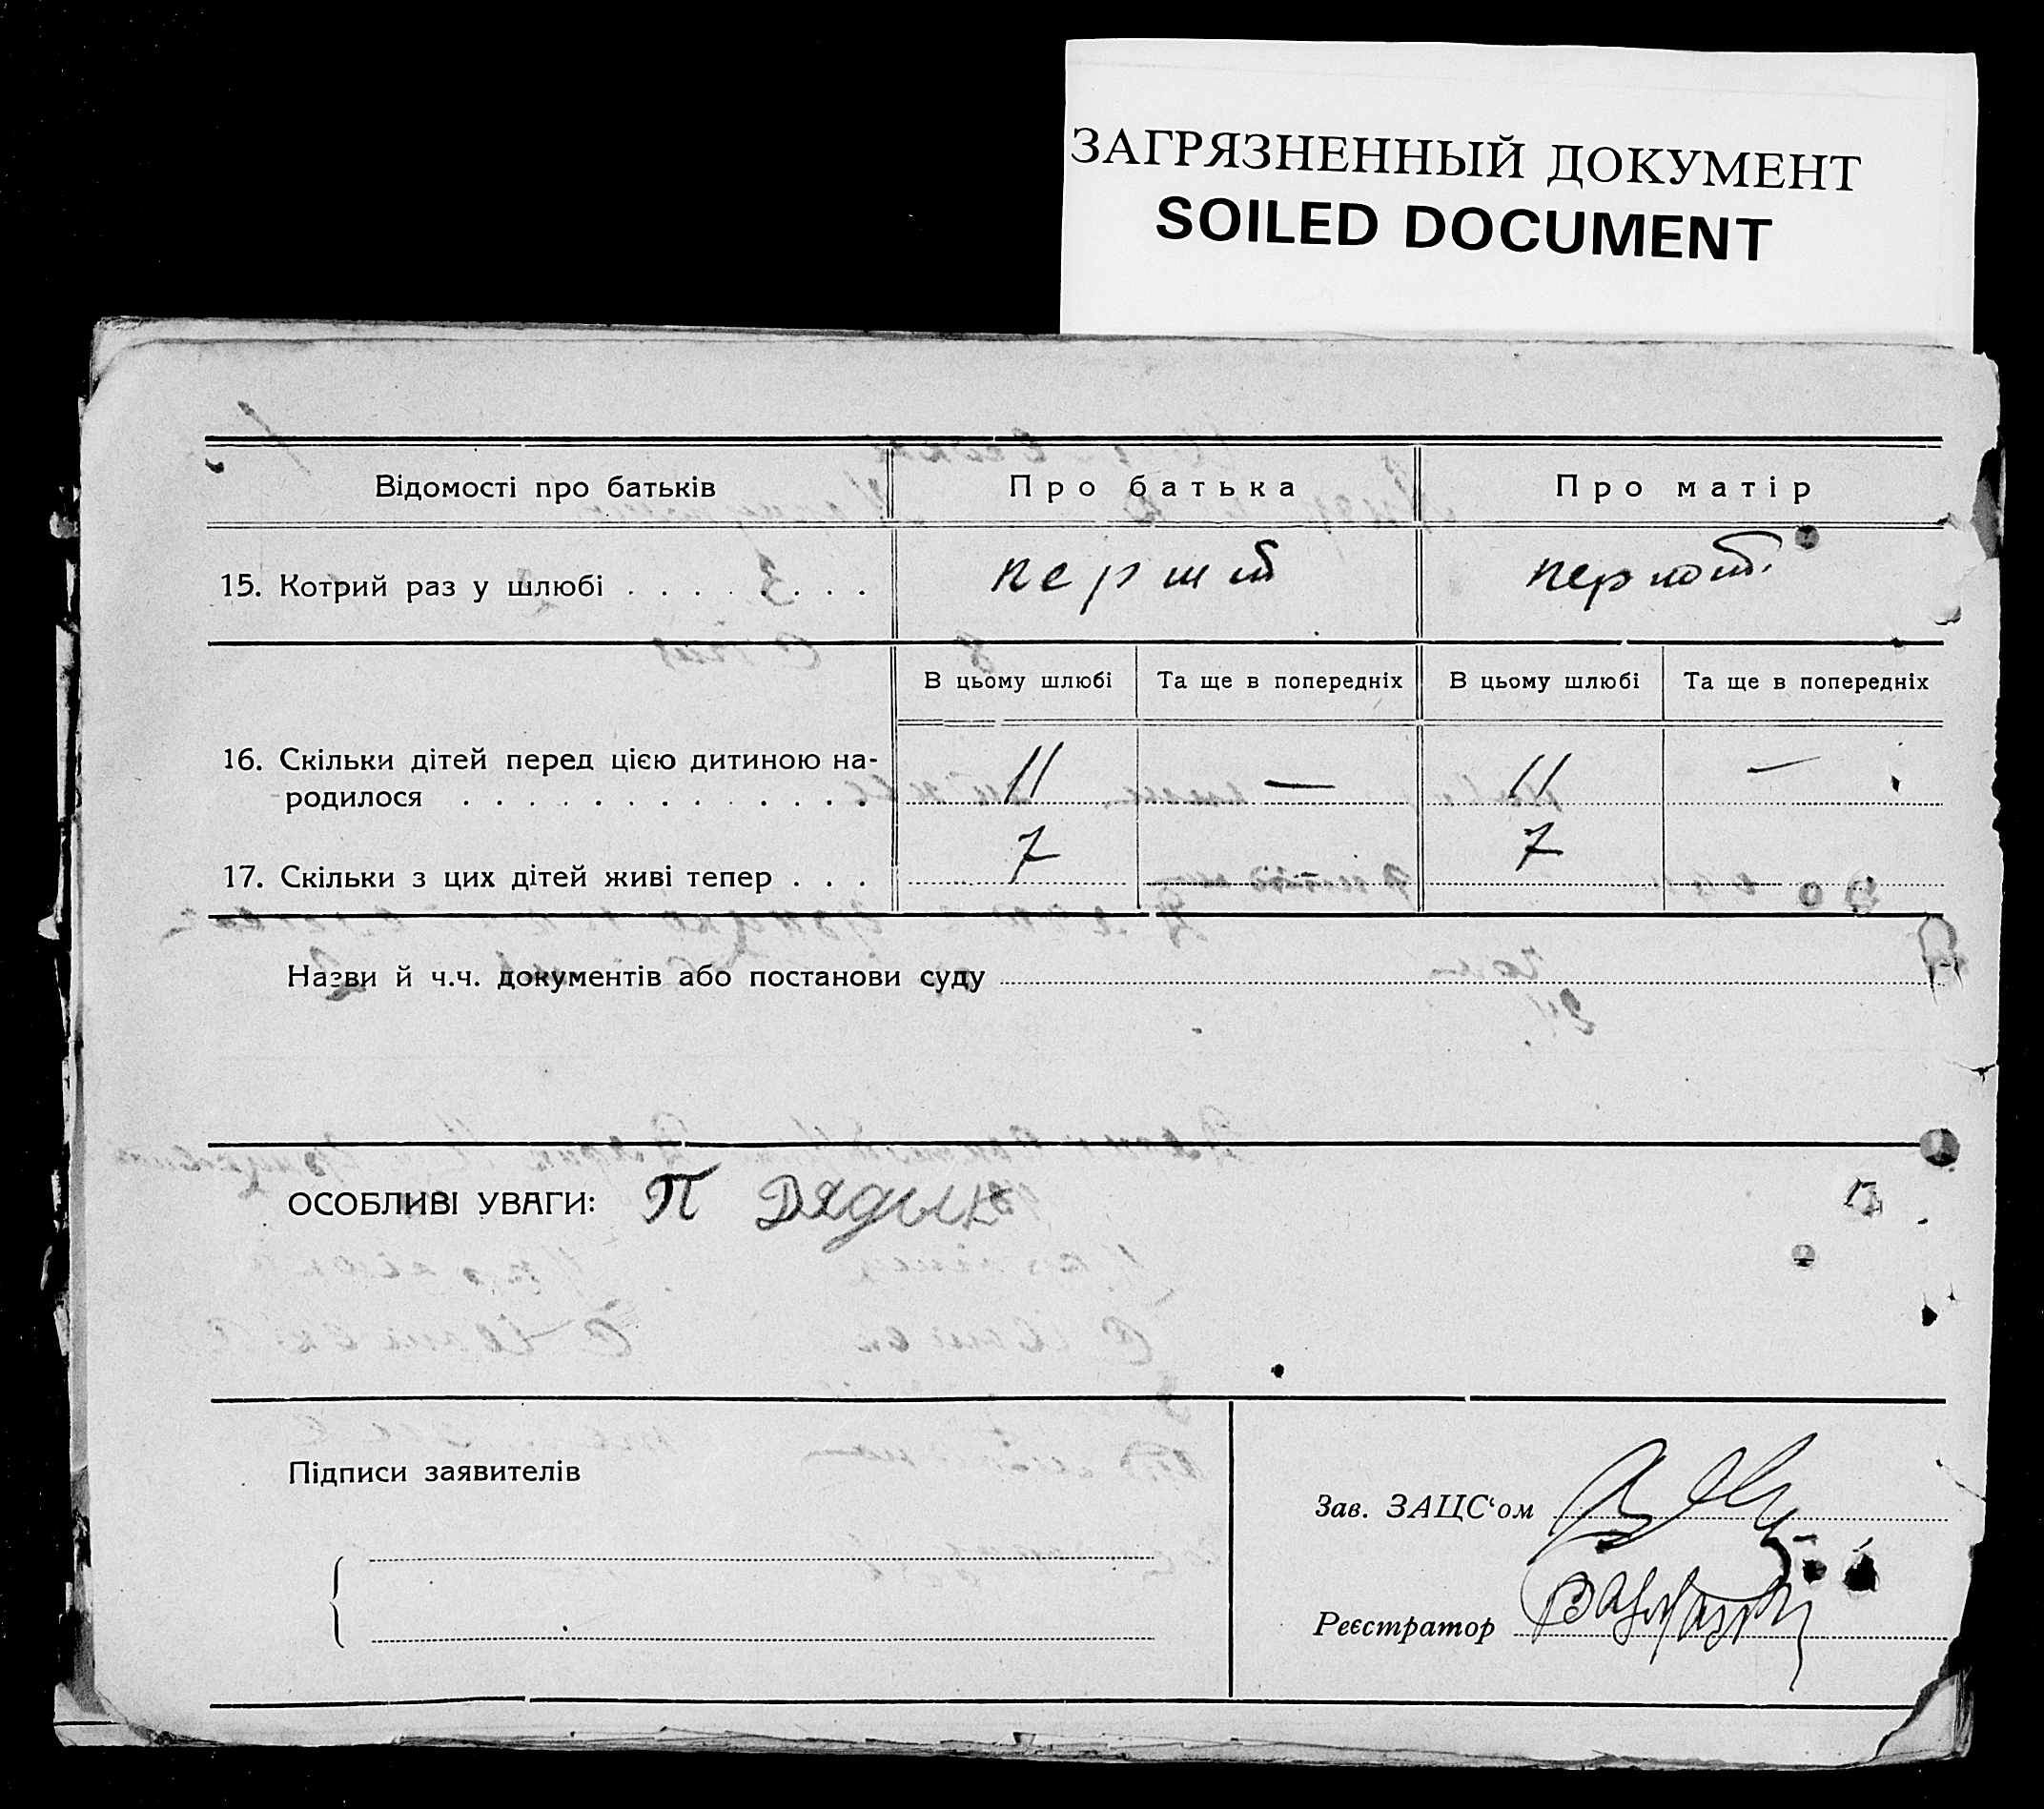 ЗАГРЯЗНЕННЫЙ ДОКУМЕНТ
SOILED DOCUMENT
Відомості про батьків Про батька Про матір
15. Котрий раз у шлюбі . . . . . . . . перший
В цьому шлюбі Та ще в попередніх В цьому шлюбі Та ще в попередніх
16. Скільки дітей перед цією дитиною на-
родилося . . . . . . . . . . . . . 11 — 11 —
17. Скільки з цих дітей живі тепер . . . 7 7
Назви й ч.ч. документів або постанови суду
ОСОБЛИВІ УВАГИ: П
Підписи заявителів
Зав. ЗАЦС‘ом
Реєстратор